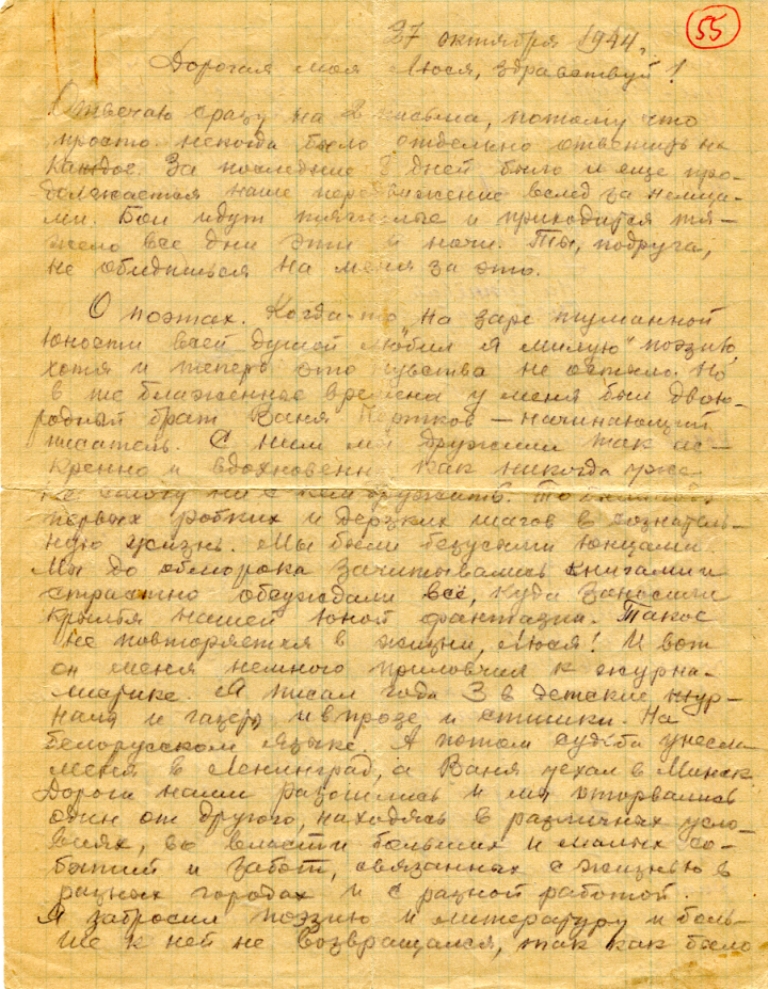 55
27 октября 1944.
Дорогая моя Люся, здравствуй!
Отвечаю сразу на 2 письма, потому что
просто некогда было отдельно ответить на
каждое. За последние 8 дней было и еще про-
должается наше передвижение вслед за немца-
ми. Бои идут тяжелые и приходится тя-
жело все дни эти и ночи. Ты, подруга,
не обидишься на меня за это.
О поэтах. Когда-то „на заре туманной
юности всей душой любил я милую" поэзию,
хотя и теперь это чувство не остыло. Но
в те блаженные времена у меня был двою-
родный брат Ваня — начинающий
писатель. С ним мы дружили так ис-
кренно и вдохновенно как никогда уже
не смогу ни с кем дружить. То
первых робких и дерзких шагов в сознатель-
ную жизнь. Мы были безусыми юнцами.
Мы до обморока зачитывались книгами и
страстно обсуждали всё, куда заносили
крылья нашей юной фантазии. Такое
не повторяется в жизни, Люся! И вот
он меня немного приловчил к журна-
листике. Я писал года 3 в детские жур-
налы и газеты и в прозе и стишки. На
белорусском языке. А потом судьба унесла
меня в Ленинград, а Ваня уехал в Минск.
Дороги наши разошлись и мы оторвались
один от другого, находясь в различных усло-
виях, во власти больших и малых со-
бытий и забот, связанных с жизнью в
разных городах и с разной работой.
Я забросил поэзию и литературу и боль-
ше к ней не возвращался, так как было